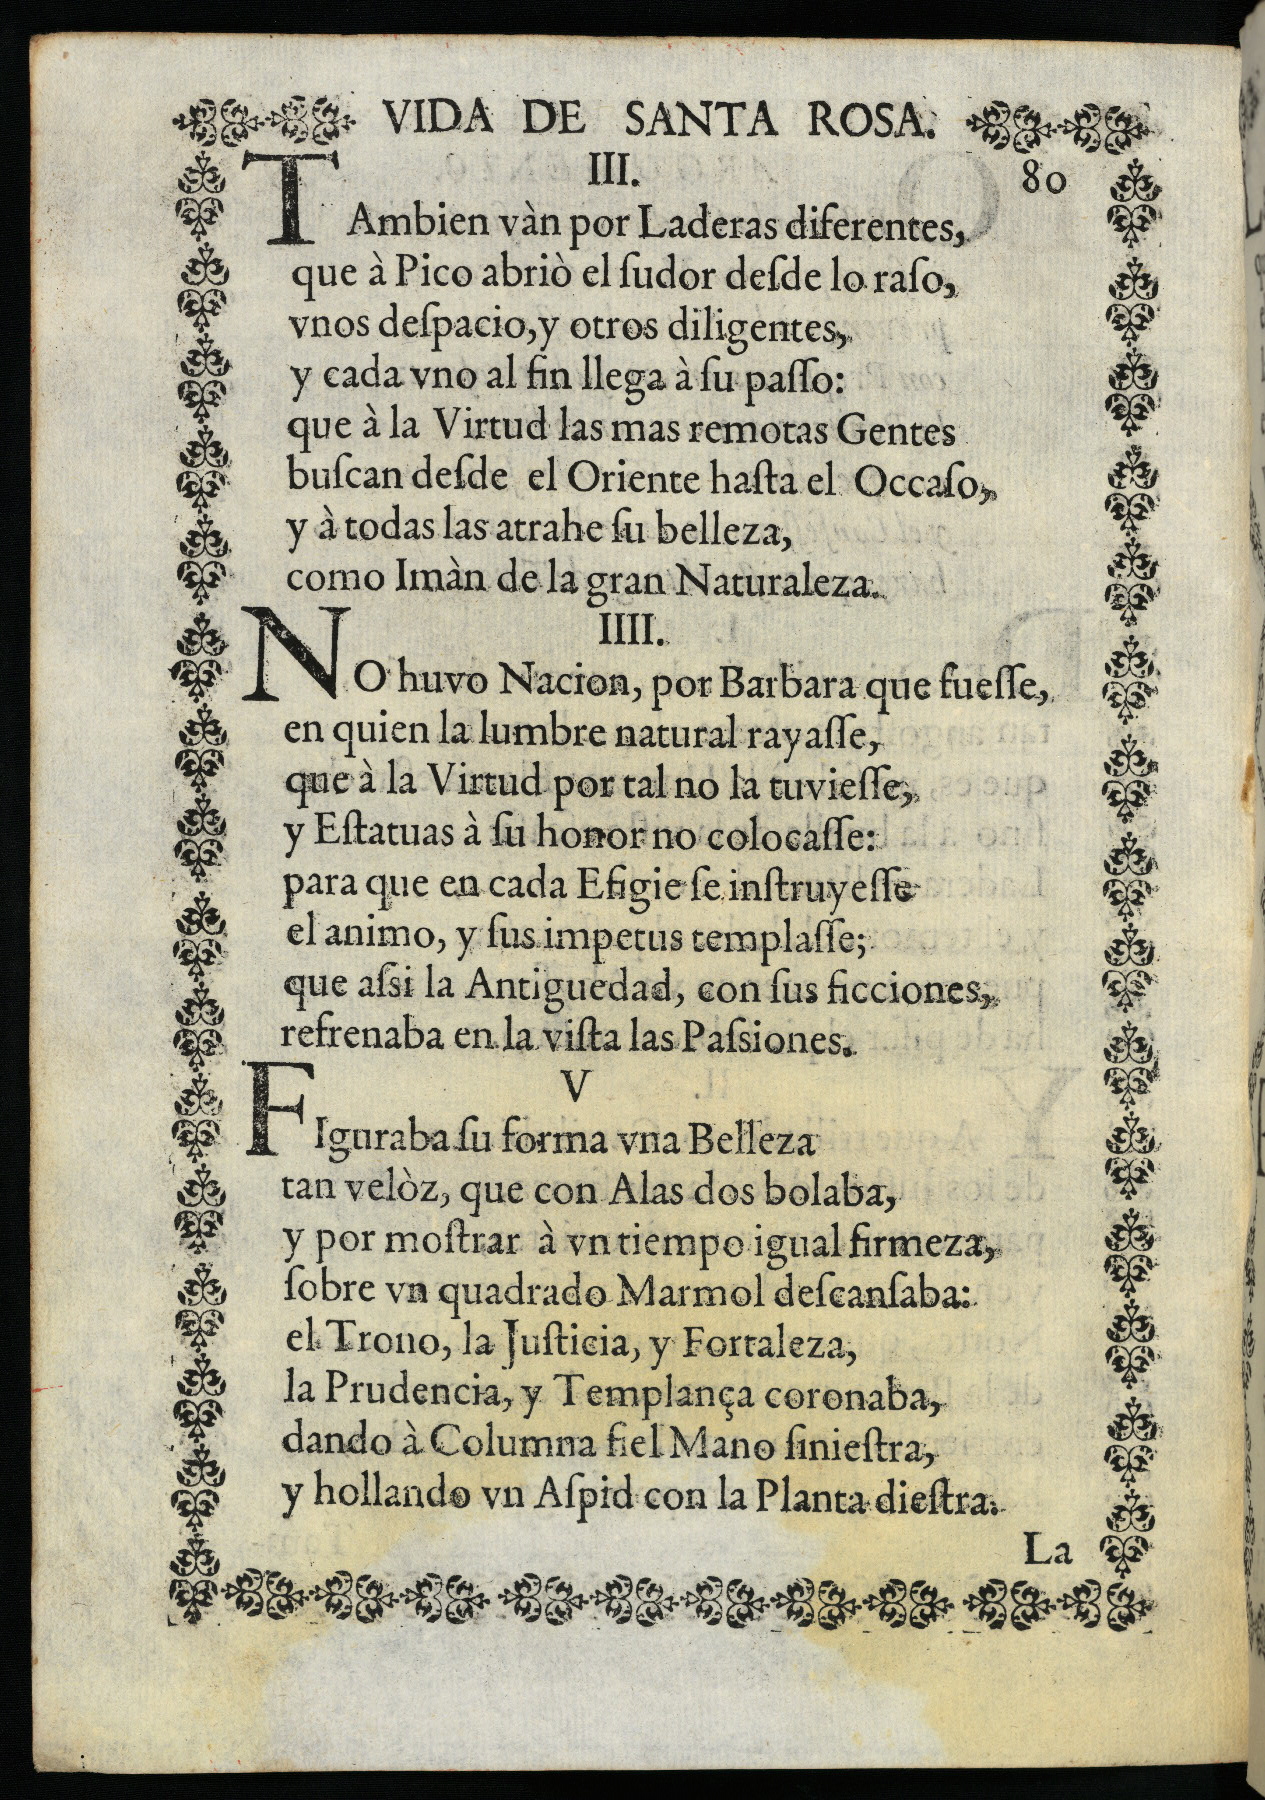 VIDA DE SANTA ROSA.
III. 80
TAmbien vàn por Laderas diferentes,
que à Pico abriò el ſudor deſde lo raſo,
vnos deſpacio, y otros diligentes,
y cada vno al fin llega à ſu paſſo:
que à la Virtud las mas remotas Gentes
buſcan deſde el Oriente haſta el Occaſo,
y à todas las atrahe ſu belleza,
como Imàn de la gran Naturaleza.
IIII.
NO huvo Nacion, por Barbara que fueſſe,
en quien la lumbre natural rayaſſe,
que à la Virtud por tal no la tuvieſſe,
y Eſtatuas à ſu honor no colocaſſe:
para que en cada Efigie ſe inſtruyeſſe
el animo, y ſus impetus templaſſe;
que aſsi la Antiguedad, con ſus ficciones,
refrenaba en la viſta las Paſsiones.
V
FIguraba ſu forma vna Belleza
tan velòz, que con Alas dos bolaba,
y por moſtrar à vn tiempo igual firmeza,
ſobre vn quadrado Marmol deſcanſaba:
el Trono, la Juſticia, y Fortaleza,
la Prudencia, y Templança coronaba,
dando à Columna fiel Mano ſinieſtra,
y hollando vn Aſpid con la Planta dieſtra.
La